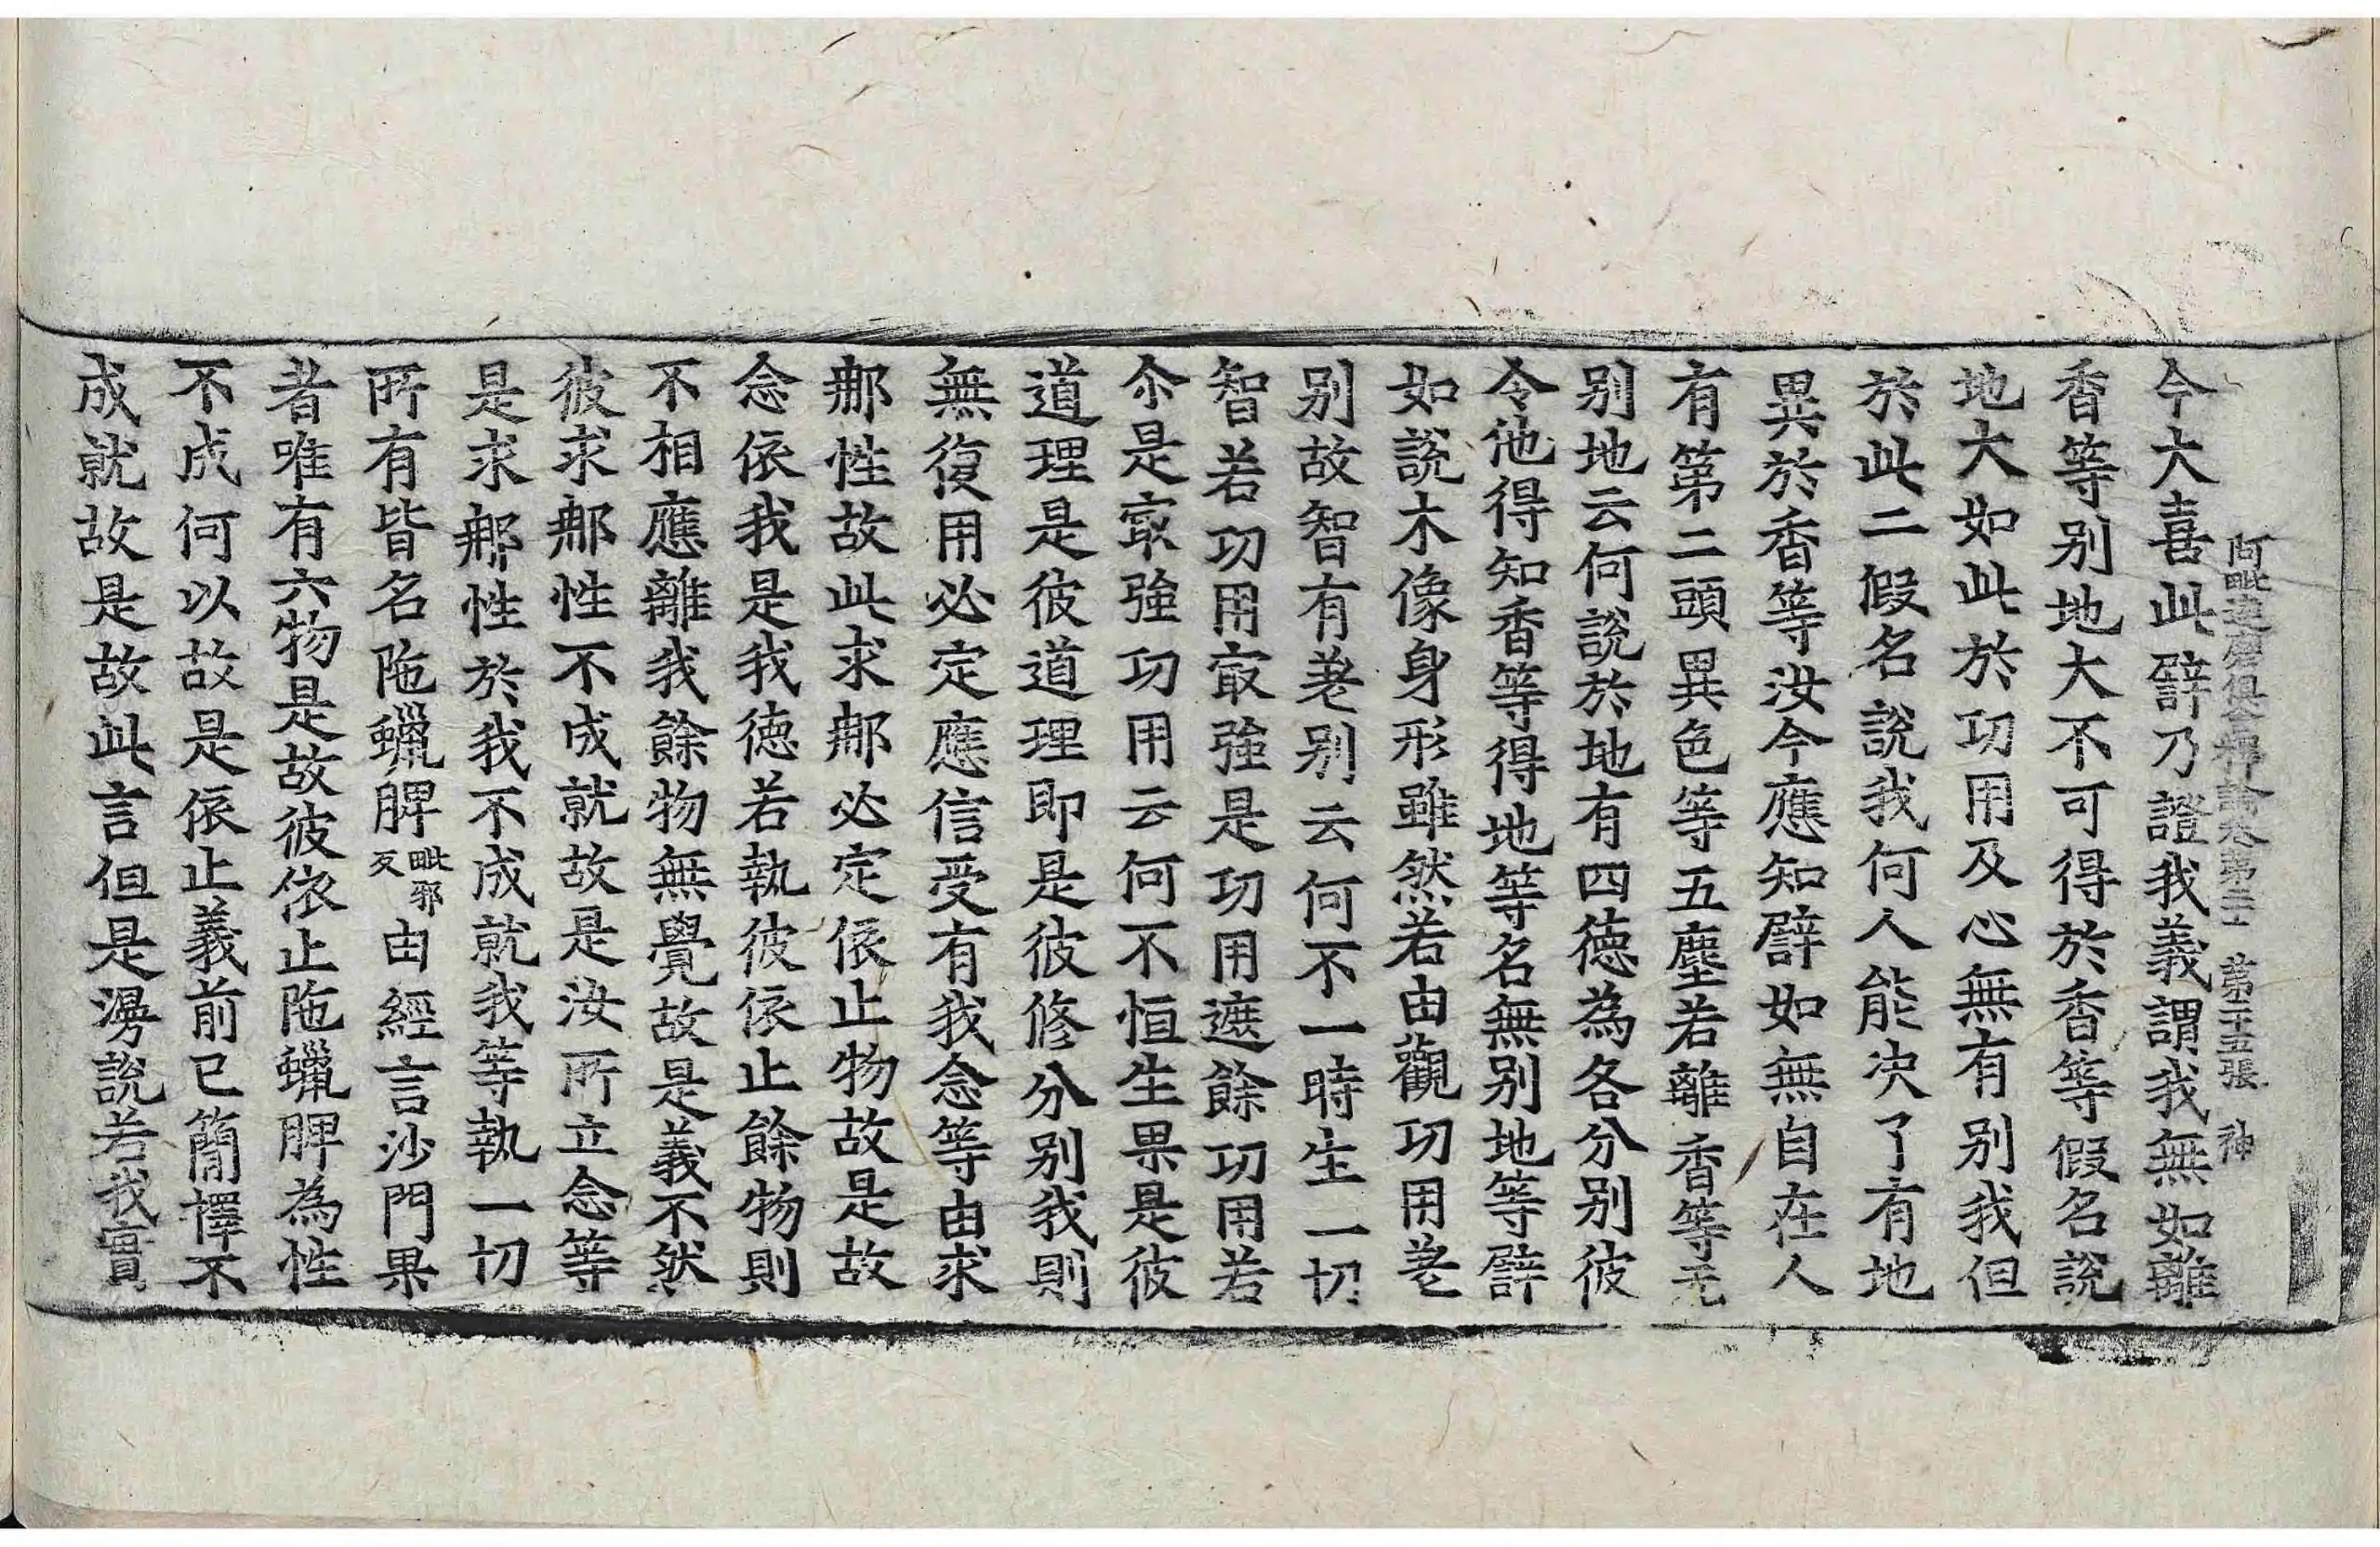 阿毗達磨俱舍釋論卷第二十二 第二十五張 神
今大喜此譬乃證我義謂我無如離
香等別地大不可得於香等假名說
地大如此於功用及心無有別我但
於此二假名說我何人能決了有地
異於香等汝今應知譬如無自在人
有第二頭異色等五塵若離香等无
別地云何說於地有四德為各分別彼
令他得知香等得地等名無別地等譬
如說木像身形雖然若由觀功用差
別故智有差別云何不一時生一切
智若功用㝡強是功用遮餘功用若
尒是㝡強功用云何不恒生果是彼
道理是彼道理即是彼修分別我則
無復用必定應信受有我念等由求
那性故此求那必定依止物故是故
念依我是我德若執彼依止餘物則
不相應離我餘物無覺故是義不然
彼求那性不成就故是汝所立念等
是求那性於我不成就我等執一切
所有皆名陁蠟脾毗邪反由經言沙門果
者唯有六物是故彼依止陁蠟脾為性
不成何以故是依止義前已簡擇不
成就故是故此言但是漫說若我實